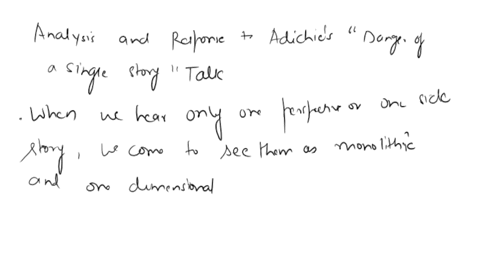 Analysis and Response to Adichie's "Danger of
a single story" Talk
. When we hear only one perspective or one side
story, we come to see them as monolithic
and one dimensional